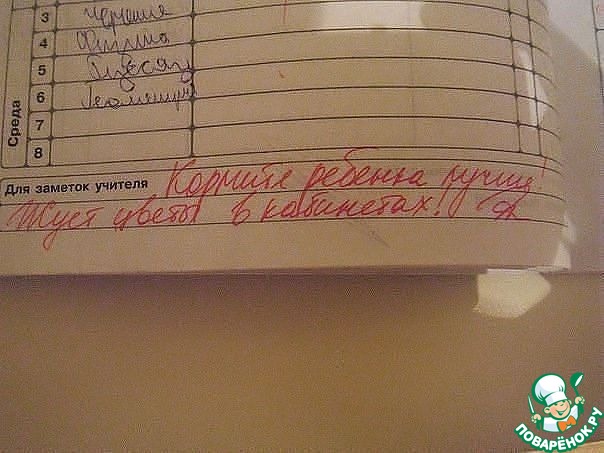 3 Черчение
4 Физика
5
6 Геометрия
7
8
Среда
Для заметок учителя Кормите ребенка лучше!
Жует цветы в кабинетах!
ПОВАРЁНОК.РУ